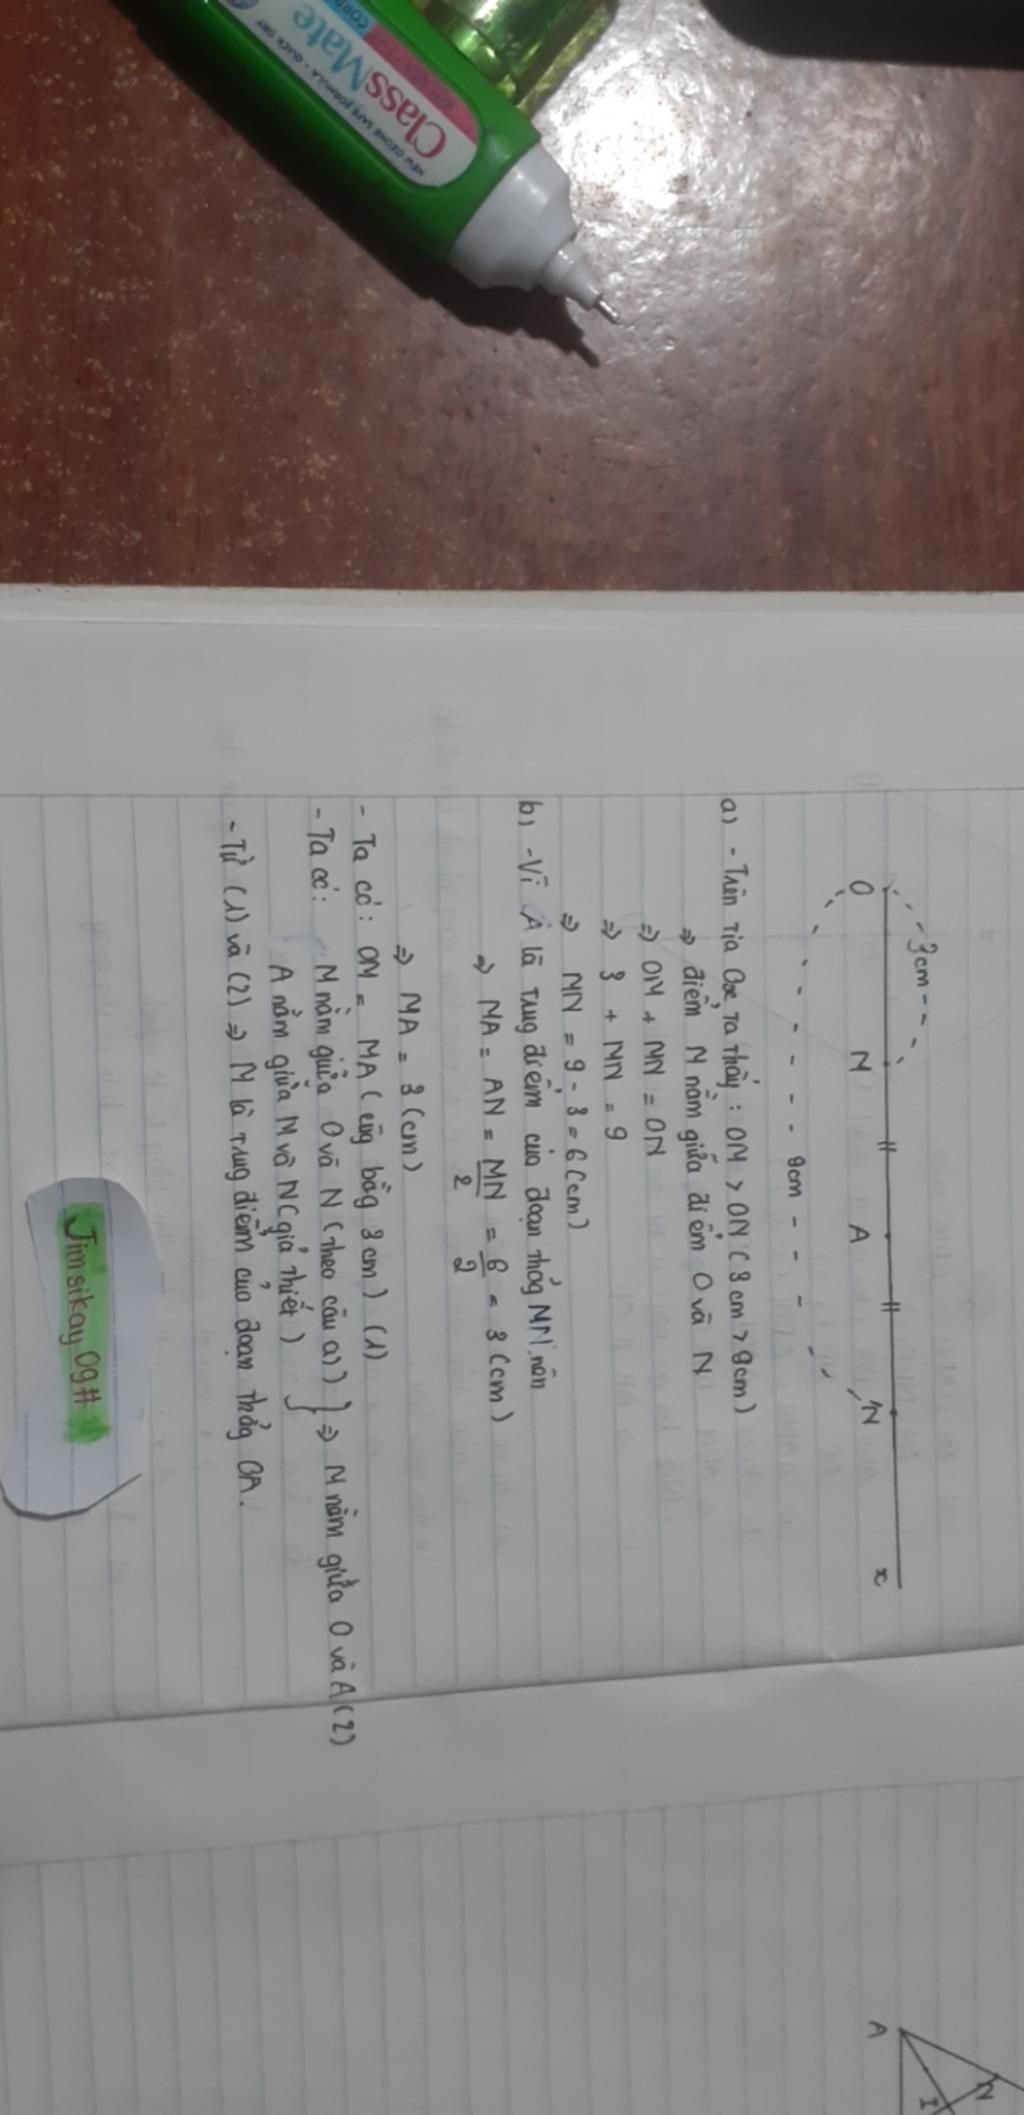 ClassMate
NEW OZONE SAFE FORMULA - QUICK DRY
3cm
O M A N x
9cm
a) - Trên tia Ox, ta thấy : OM > ON ( 3 cm > 9cm )
⇒ điểm M nằm giữa điểm O và N
⇒ OM + MN = ON
⇒ 3 + MN = 9
⇒ MN = 9 - 3 = 6 ( cm )
b) - Vì A là trug điểm của đoạn thẳg MN nên
⇒ MA = AN = MN/2 = 6/2 = 3 ( cm )
⇒ MA = 3 (cm)
- Ta có : OM = MA ( cũg bằg 3 cm ) (1)
- Ta có : M nằm giữa O và N ( theo câu a) ) } ⇒ M nằm giữa O và A (2)
A nằm giữa M và N ( giả thiết )
- Từ (1) và (2) ⇒ M là trug điểm của đoạn thẳg OA.
Jimsikay09#
A
N
I